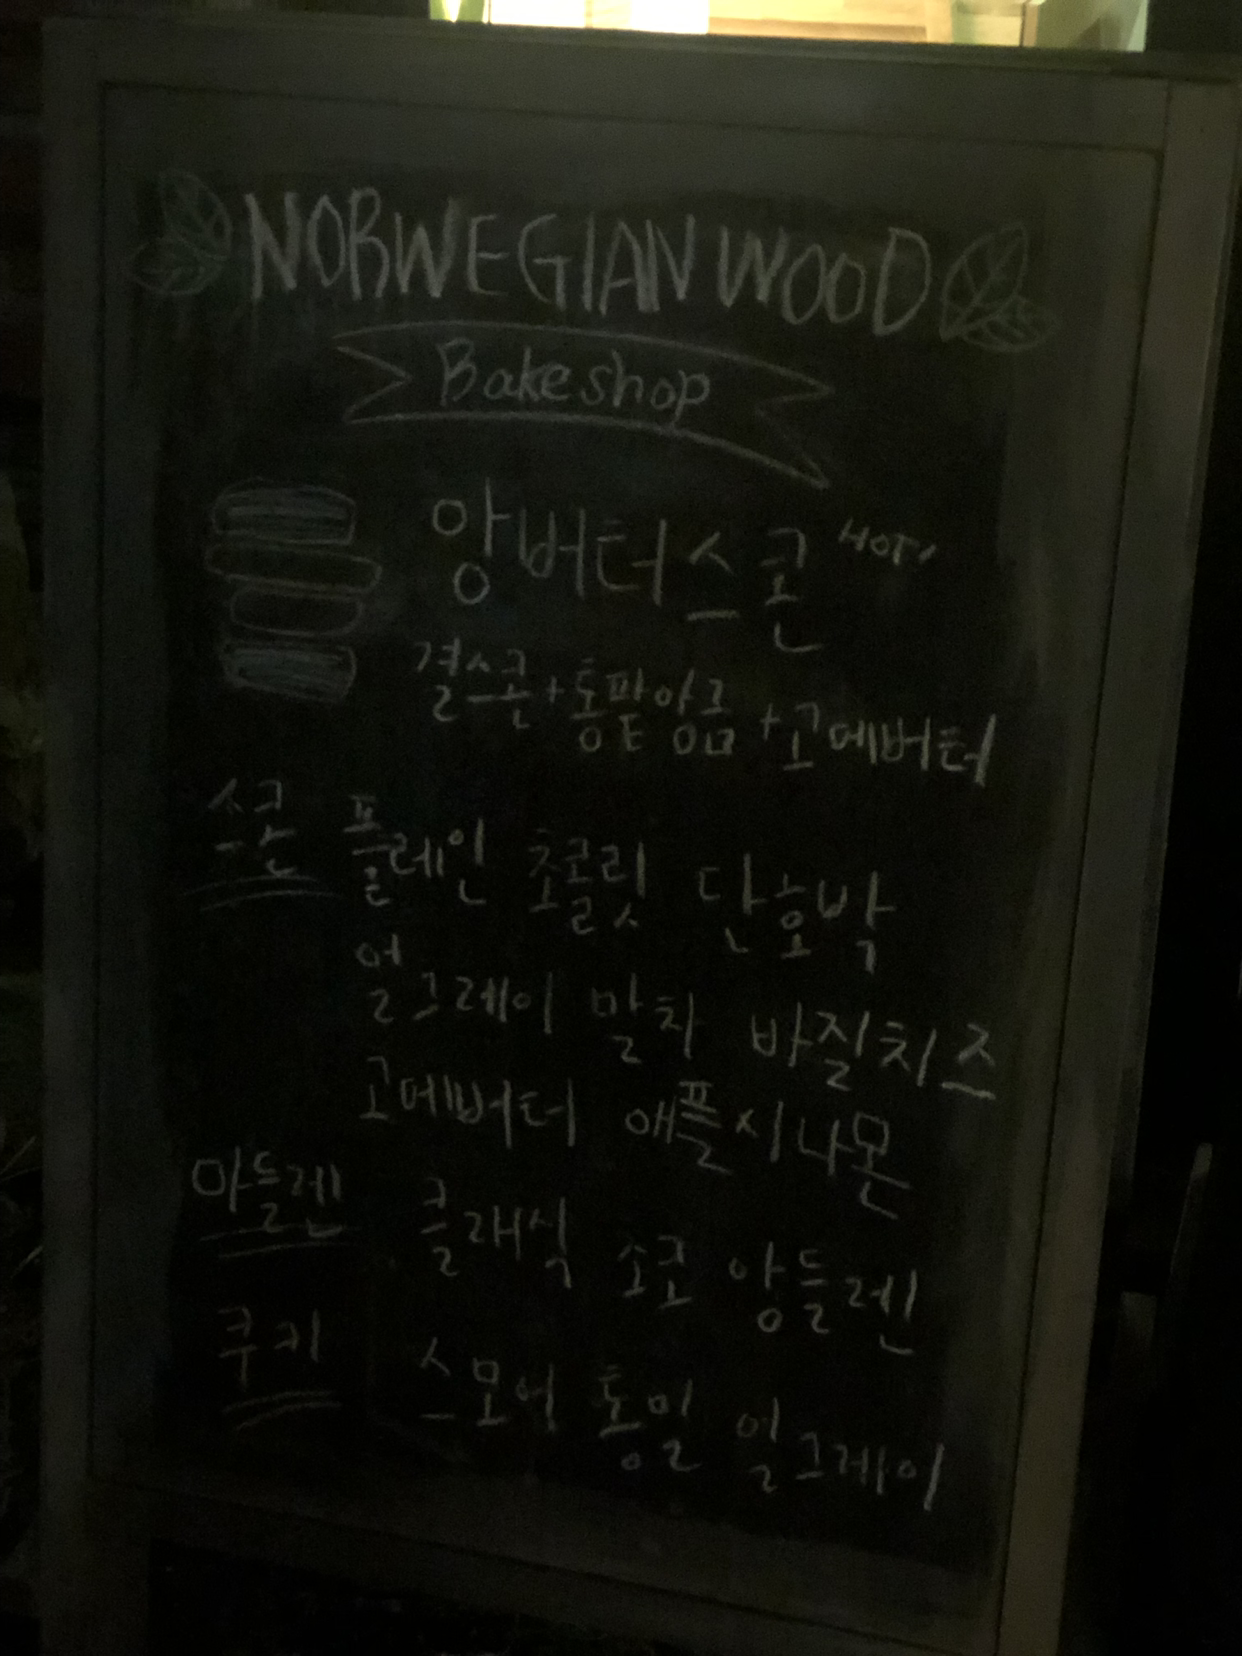 NORWEGIAN WOOD
Bakeshop
앙버터스콘 HOT!
결스콘+통팥앙금+고메버터
스콘 플레인 초콜릿 단호박
얼그레이 말차 바질치즈
고메버터 애플시나몬
마들렌 클래식 쇼콜 앙들렌
쿠키 스모어 통밀 얼그레이